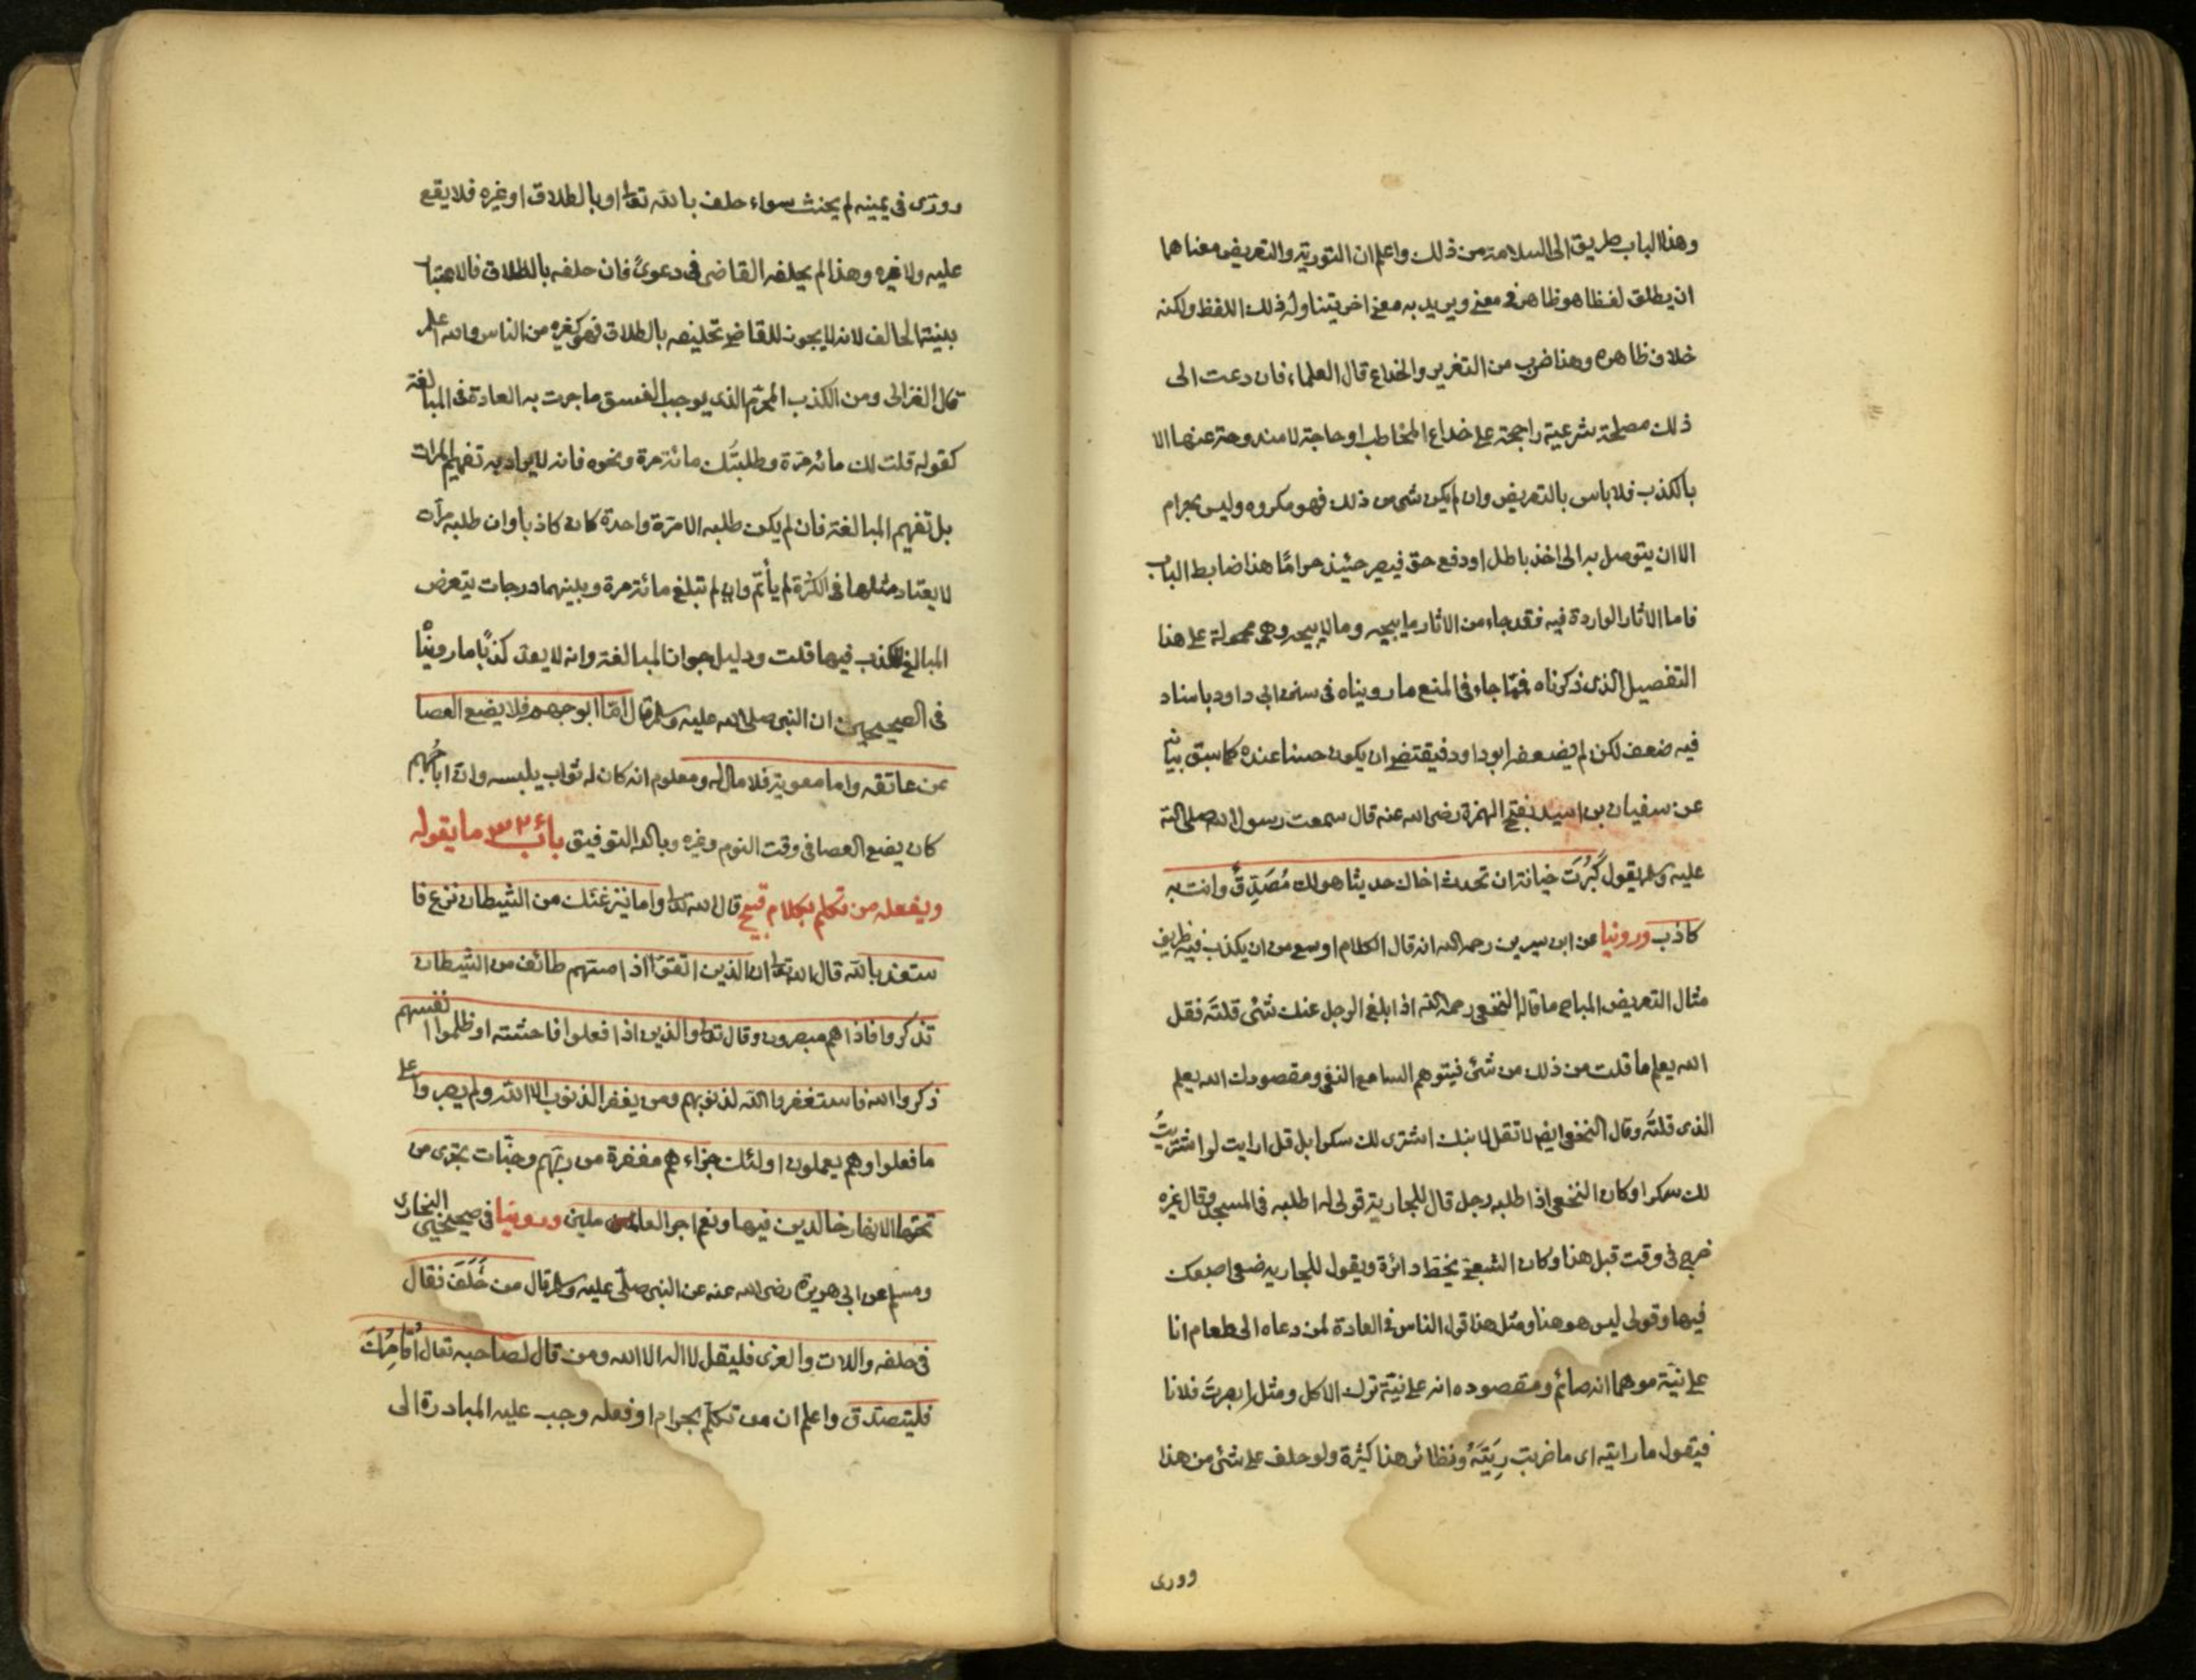 وهذا الباب طريق الى السلامة من ذلك واعلم ان التورية والتعريض معناهما
ان يطلق لفظا هو ظاهر في معنى ويريد به معنى اخر يتناوله ذلك اللفظ ولكنه
خلاف ظاهره وهذا ضرب من التغرير والخداع قال العلماء فان دعت الى
ذلك مصلحة شرعية راجحة على خداع المخاطب او حاجة لا مندوحة عنها الا
بالكذب فلا باس بالتعريض وان لم يكن شئ من ذلك فهو مكروه وليس بحرام
الا ان يتوصل به الى اخذ باطل او دفع حق فيصير حينئذ حرامًا هذا ضابط الباب
فاما الاثار الواردة فيه فقد جاء من الاثار ما يبيحه وما لا يبيحه وهى محمولة على هذا
التفصيل الذى ذكرناه فمّا جاء فى المنع ما رويناه فى سنن ابى داود باسناد
فيه ضعف لكن لم يضعفه ابو داود فيقتضى ان يكون حسنا عنده كما سبق بيانه
عن سفيان بن اسيد بفتح الهمزة رضى الله عنه قال سمعت رسول الله صلى الله
عليه وسلم يقول كَبُرَت خيانة ان تحدث اخاك حديثا هو لك مُصَدِّقٌ وانت به
كاذب وروينا عن ابن سيرين رحمه الله انه قال الكلام اوسع من ان يكذب فيه ظريف
مثال التعريض المباح ما قاله النخعى رحمه الله اذا بلغ الرجل عنك شئى قلتَه فقل
الله يعلم ما قلت من ذلك من شئ فيتوهم السامع النفى ومقصودك الله يعلم
الذى قلتَه وقال النخعى ايضا لا تقل لابنك اشترى لك سكرا بل قل ارايت لو اشتريتُ
لك سكرا وكان النخعى اذا طلبه رجل قال للجارية قولى له اطلبه فى المسجد وقال غيره
خرج فى وقت قبل هذا وكان الشعبى يخط دائرة ويقول للجارية ضعى اصبعك
فيها وقولى ليس هو هنا ومثل هذا قول الناس فى العادة لمن دعاه الى طعام انا
على نيّة موهما انه صائم ومقصوده انه على نيّة ترك الاكل ومثل ابصرتَ فلانا
فيقول ما رايته اى ما ضربت رِيَتَهُ ونظائر هذا كثيرة ولو حلف على شئ من هذا
وورى
وورّى فى يمينه لم يحنث سواء حلف بالله تعالى او بالطلاق او غيره فلا يقع
عليه ولا غيره وهذا لم يحلفه القاضى فى دعوىً فان حلفه بالطلاق فالاعتبار
بنية الحالف لانه لا يجوز للقاضى تحليفه بالطلاق فهو كغيره من الناس والله اعلم
قال الغزالى ومن الكذب المحرّم الذى يوجب الفسق ما جرت به العادة فى المبالغة
كقوله قلت لك مائة مرّة وطلبتُك مائة مرة ونحوه فانه لا يراد به تفهيم المرات
بل تفهيم المبالغة فان لم يكن طلبه الا مرّة واحدة كان كاذبا وان طلبه مرّات
لا يعتاد مثلها فى الكثرة لم يأثم وان لم تبلغ مائة مرة وبينهما درجات يتعرض
المبالغ للكذب فيها قلت ودليل جواز المبالغة وانه لا يعدّ كذبًا ما رويناه
فى الصحيحين ان النبى صلى الله عليه وسلم قال امّا ابو جهم فلا يضع العصا
عن عاتقه واما معوية فلا مال له ومعلوم انه كان له ثواب يلبسه وانّ اباجُهَم
كان يضع العصا فى وقت النوم وغيره وبالله التوفيق بابٌ ٣٢٠ ما يقوله
ويفعله من تكلم بكلام قبيح قال الله تعالى واما ينزغنك من الشيطان نزغ فا
ستعذ بالله قال الله تعالى ان الذين اتقوا اذا مسّهم طائف من الشيطان
تذكروا فاذا هم مبصرون وقال تعالى والذين اذا فعلوا فاحشته او ظلموا انفسهم
ذكروا الله فاستغفروا الله لذنوبهم ومن يغفر الذنوب الا الله ولم يصروا على
ما فعلوا وهم يعملون اولئك جزاءهم مغفرة من ربّهم وجنّات تجرى من
تحتها الانهار خالدين فيها ونعم اجر العاملين وروينا فى صحيحى البخارى
ومسلم عن ابى هريرة رضى الله عنه عن النبى صلّى عليه وسلم قال من حَلَفَ فقال
فى حلفه واللات والعزى فليقل لا اله الا الله ومن قال لصاحبه تعال اُقَامِرْكَ
فليتصدّق واعلم ان من تكلّم بحرام او فعله وجب عليه المبادرة الى